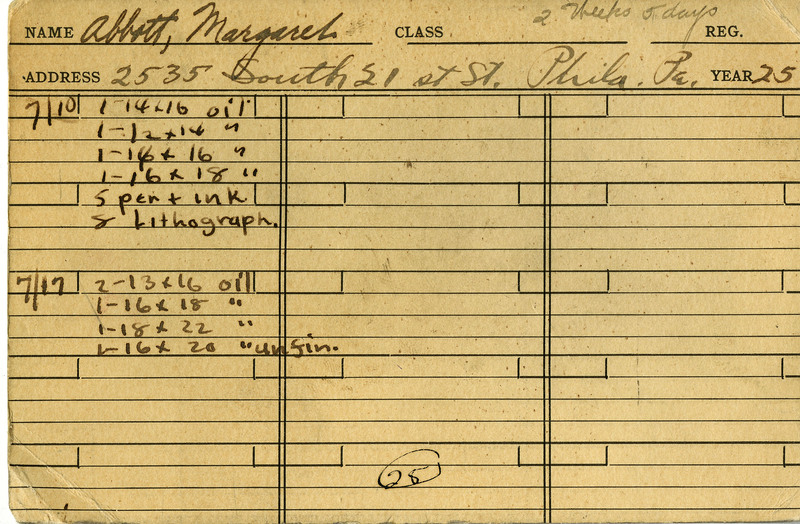 2 Weeks 5 days
NAME Abbott, Margaret CLASS REG.
ADDRESS 2535 South 21 st St. Phila. Pa. YEAR 25
7/10 1-14x16 oil
1-12x14 "
1-16x16 "
1-16x18 "
5 pen + ink
8 Lithograph.
7/17 2-13x16 oil
1-16x18 "
1-18x22 "
1-16x20 "unfin.
28